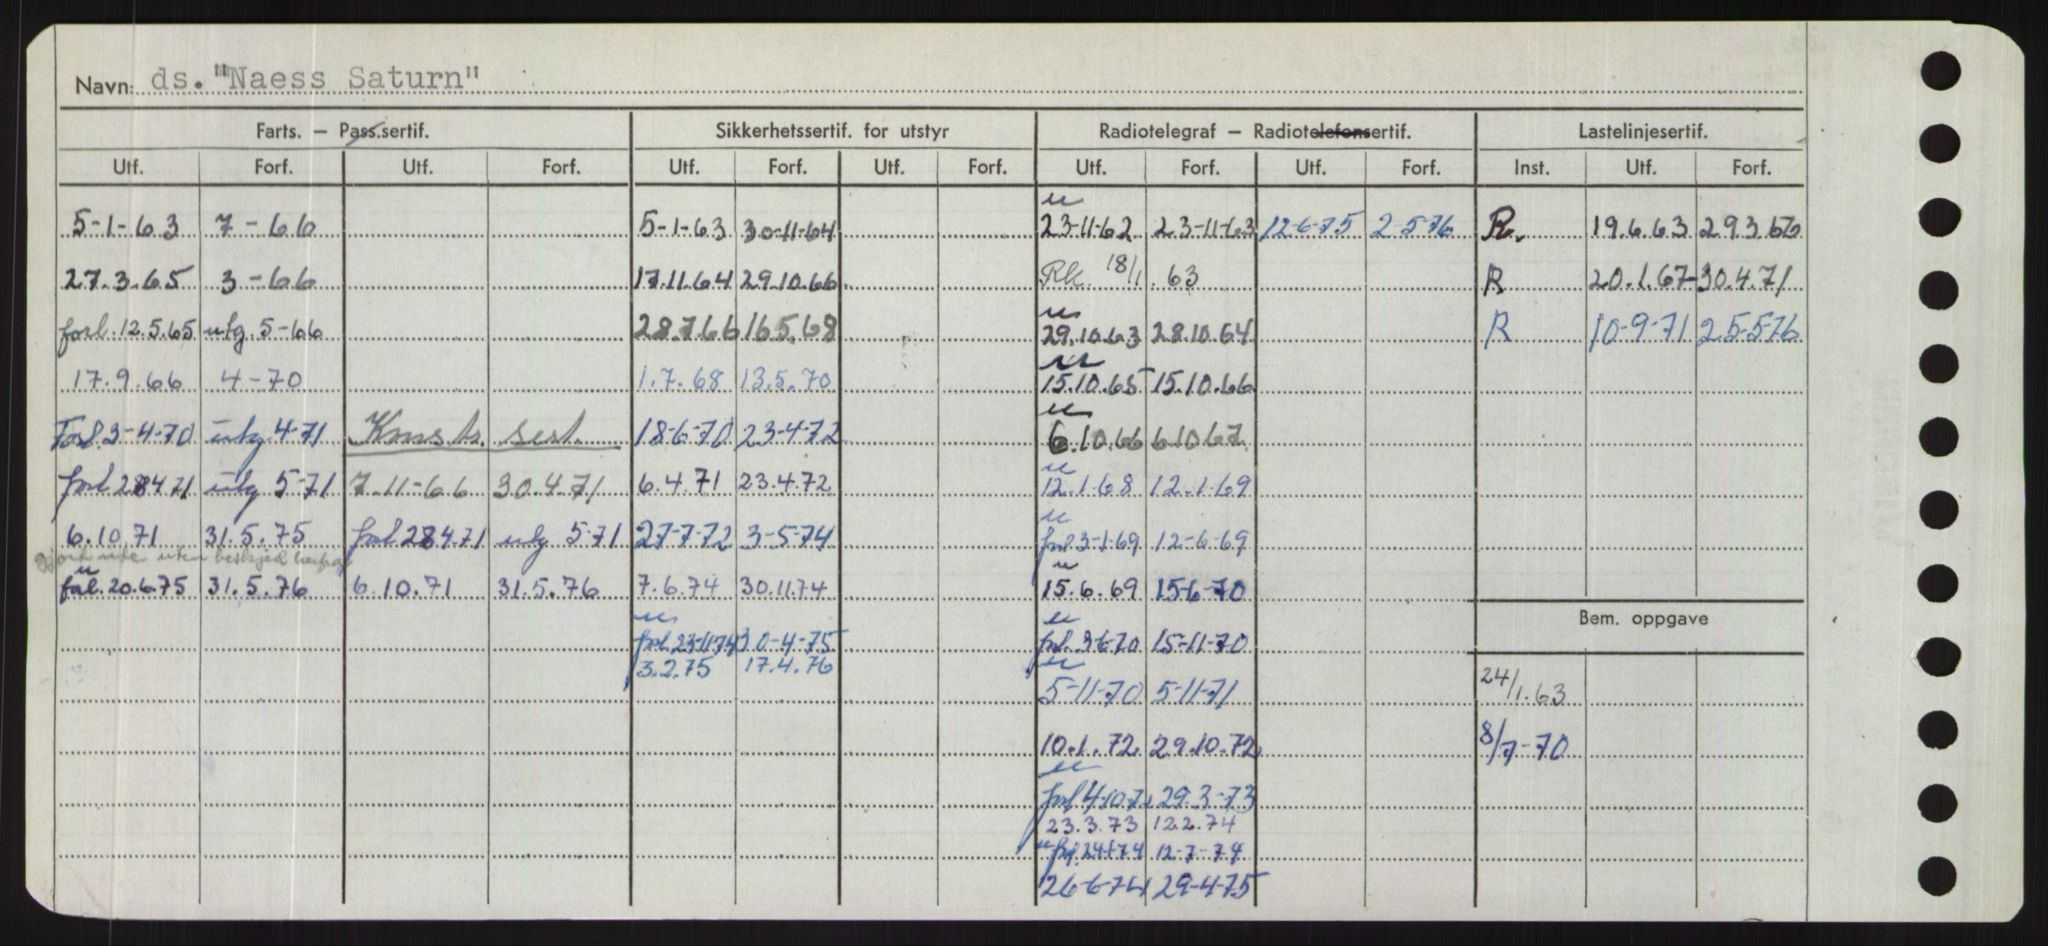 Navn: ds. "Naess Saturn"
Farts. – Pass.sertif. Sikkerhetssertif. for utstyr Radiotelegraf – Radiotelefonsertif. Lastelinjesertif.
Utf. Forf. Utf. Forf. Utf. Forf. Utf. Forf. Utf. Forf. Utf. Forf. Inst. Utf. Forf.
u
5-1-63 7-66 5-1-63 30-11-64 23-11-62 23-11-63 12-6-75 2-5-76 R. 19.6.63 29.3.66
27.3.65 3-66 17.11.64 29.10.66 Rk 18/1.63 R 20.1.67 30.4.71
u
forl. 12.5.65 utg. 5-66 28.7.66 16.5.68 29.10.63 28.10.64 R 10-9-71 25-5-76
u
17.9.66 4-70 1.7.68 13.5.70 15.10.65 15.10.66
u
Forl. 3-4-70 utg 4-71 Konstr. sert. 18-6-70 23-4-72 6.10.66 6.10.67
u
forl 28471 utg 5-71 7-11-66 30.4.71 6.4.71 23.4.72 12.1-68 12.1-69
u
6.10.71 31.5.75 forl 28471 utg 5-71 27-7-72 3-5-74 forl. 3-1-69 12-6-69
uten beskjed
u u
forl. 20.6.75 31.5.76 6.10.71 31.5.76 7.6.74 30.11.74 15.6.69 15-6-70
Bem. oppgave
u u
forl. 23-11-74 30-4-75 forl. 3-6-70 15-11-70
3.2.75 17.4.76
u
5-11-70 5-11-71 24/1.63
10.1.72 29.10.72 8/7-70
u
forl 4-10-72 29-3-73
23.3.73 12.2.74
u forl. 24-1-74 12-7-74
26-6-74 29-4-75